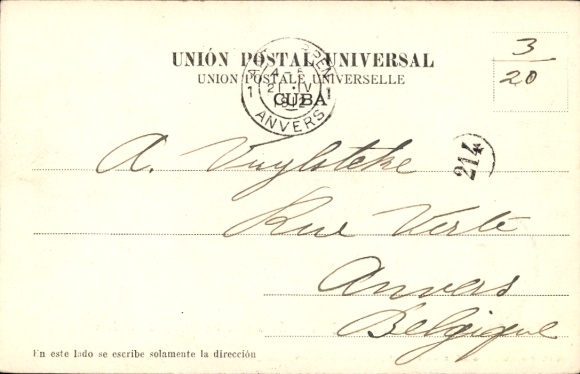 UNIÓN POSTAL UNIVERSAL
UNION POSTALE UNIVERSELLE
CUBA
1 4-5 1
21 IV
ANVERS
3
20
214
A. Vuylsteke
Rue Verte
Anvers
Belgique
En este lado se escribe solamente la dirección